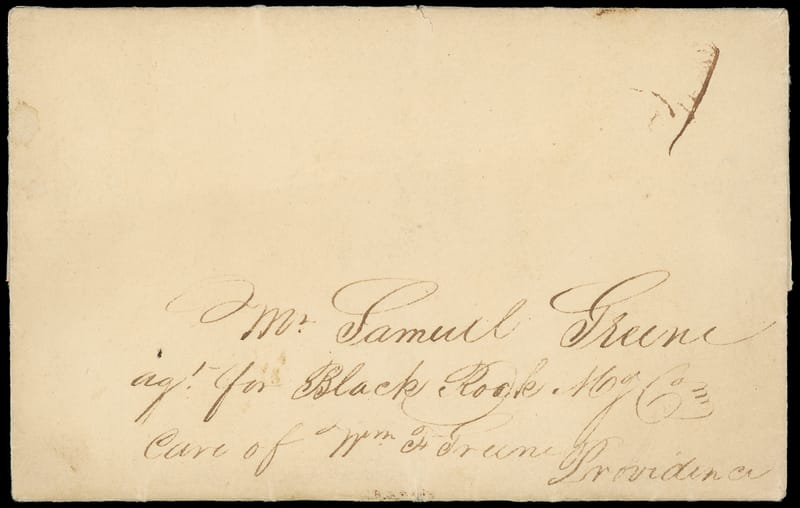 Mr Samuel Greene
agt for Black Rock Mg Com
Care of Wm F Greene
Providence